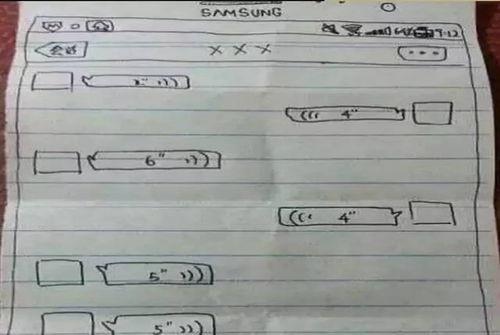 SAMSUNG
9:12
× × ×
4"
6"
4"
5"
5"